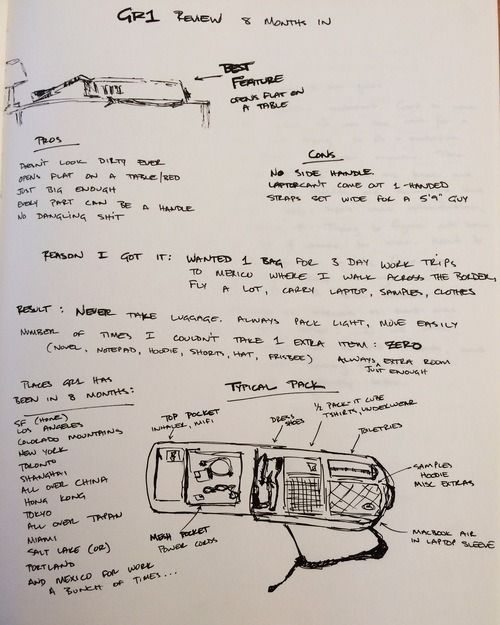 GR1 REVIEW 8 MONTHS IN
BEST
FEATURE
OPENS FLAT ON
A TABLE
PROS
DOESN'T LOOK DIRTY EVER
OPENS FLAT ON A TABLE/BED
JUST BIG ENOUGH
EVERY PART CAN BE A HANDLE
NO DANGLING SHIT
CONS
NO SIDE HANDLE.
LAPTOP CAN'T COME OUT 1-HANDED
STRAPS SET WIDE FOR A 5'9" GUY
REASON I GOT IT: WANTED 1 BAG FOR 3 DAY WORK TRIPS
TO MEXICO WHERE I WALK ACROSS THE BORDER,
FLY A LOT, CARRY LAPTOP, SAMPLES, CLOTHES
RESULT: NEVER TAKE LUGGAGE. ALWAYS PACK LIGHT, MOVE EASILY
NUMBER OF TIMES I COULDN'T TAKE 1 EXTRA ITEM: ZERO
(NOVEL, NOTEPAD, HOODIE, SHORTS, HAT, FRISBEE) ALWAYS JUST ENOUGH EXTRA ROOM
PLACES GR1 HAS
BEEN IN 8 MONTHS:
SF (HOME)
LOS ANGELES
COLORADO MOUNTAINS
NEW YORK
TORONTO
SHANGHAI
ALL OVER CHINA
HONG KONG
TOKYO
ALL OVER JAPAN
MIAMI
SALT LAKE (OR)
PORTLAND
AND MEXICO FOR WORK
A BUNCH OF TIMES...
TYPICAL PACK
TOP POCKET
INHALER, MIFI
DRESS
SHOES
1/2 PACK-IT CUBE
TSHIRTS, UNDERWEAR
TOILETRIES
SAMPLES
HOODIE
MISC EXTRAS
MESH POCKET
POWER CORDS
MACBOOK AIR
IN LAPTOP SLEEVE